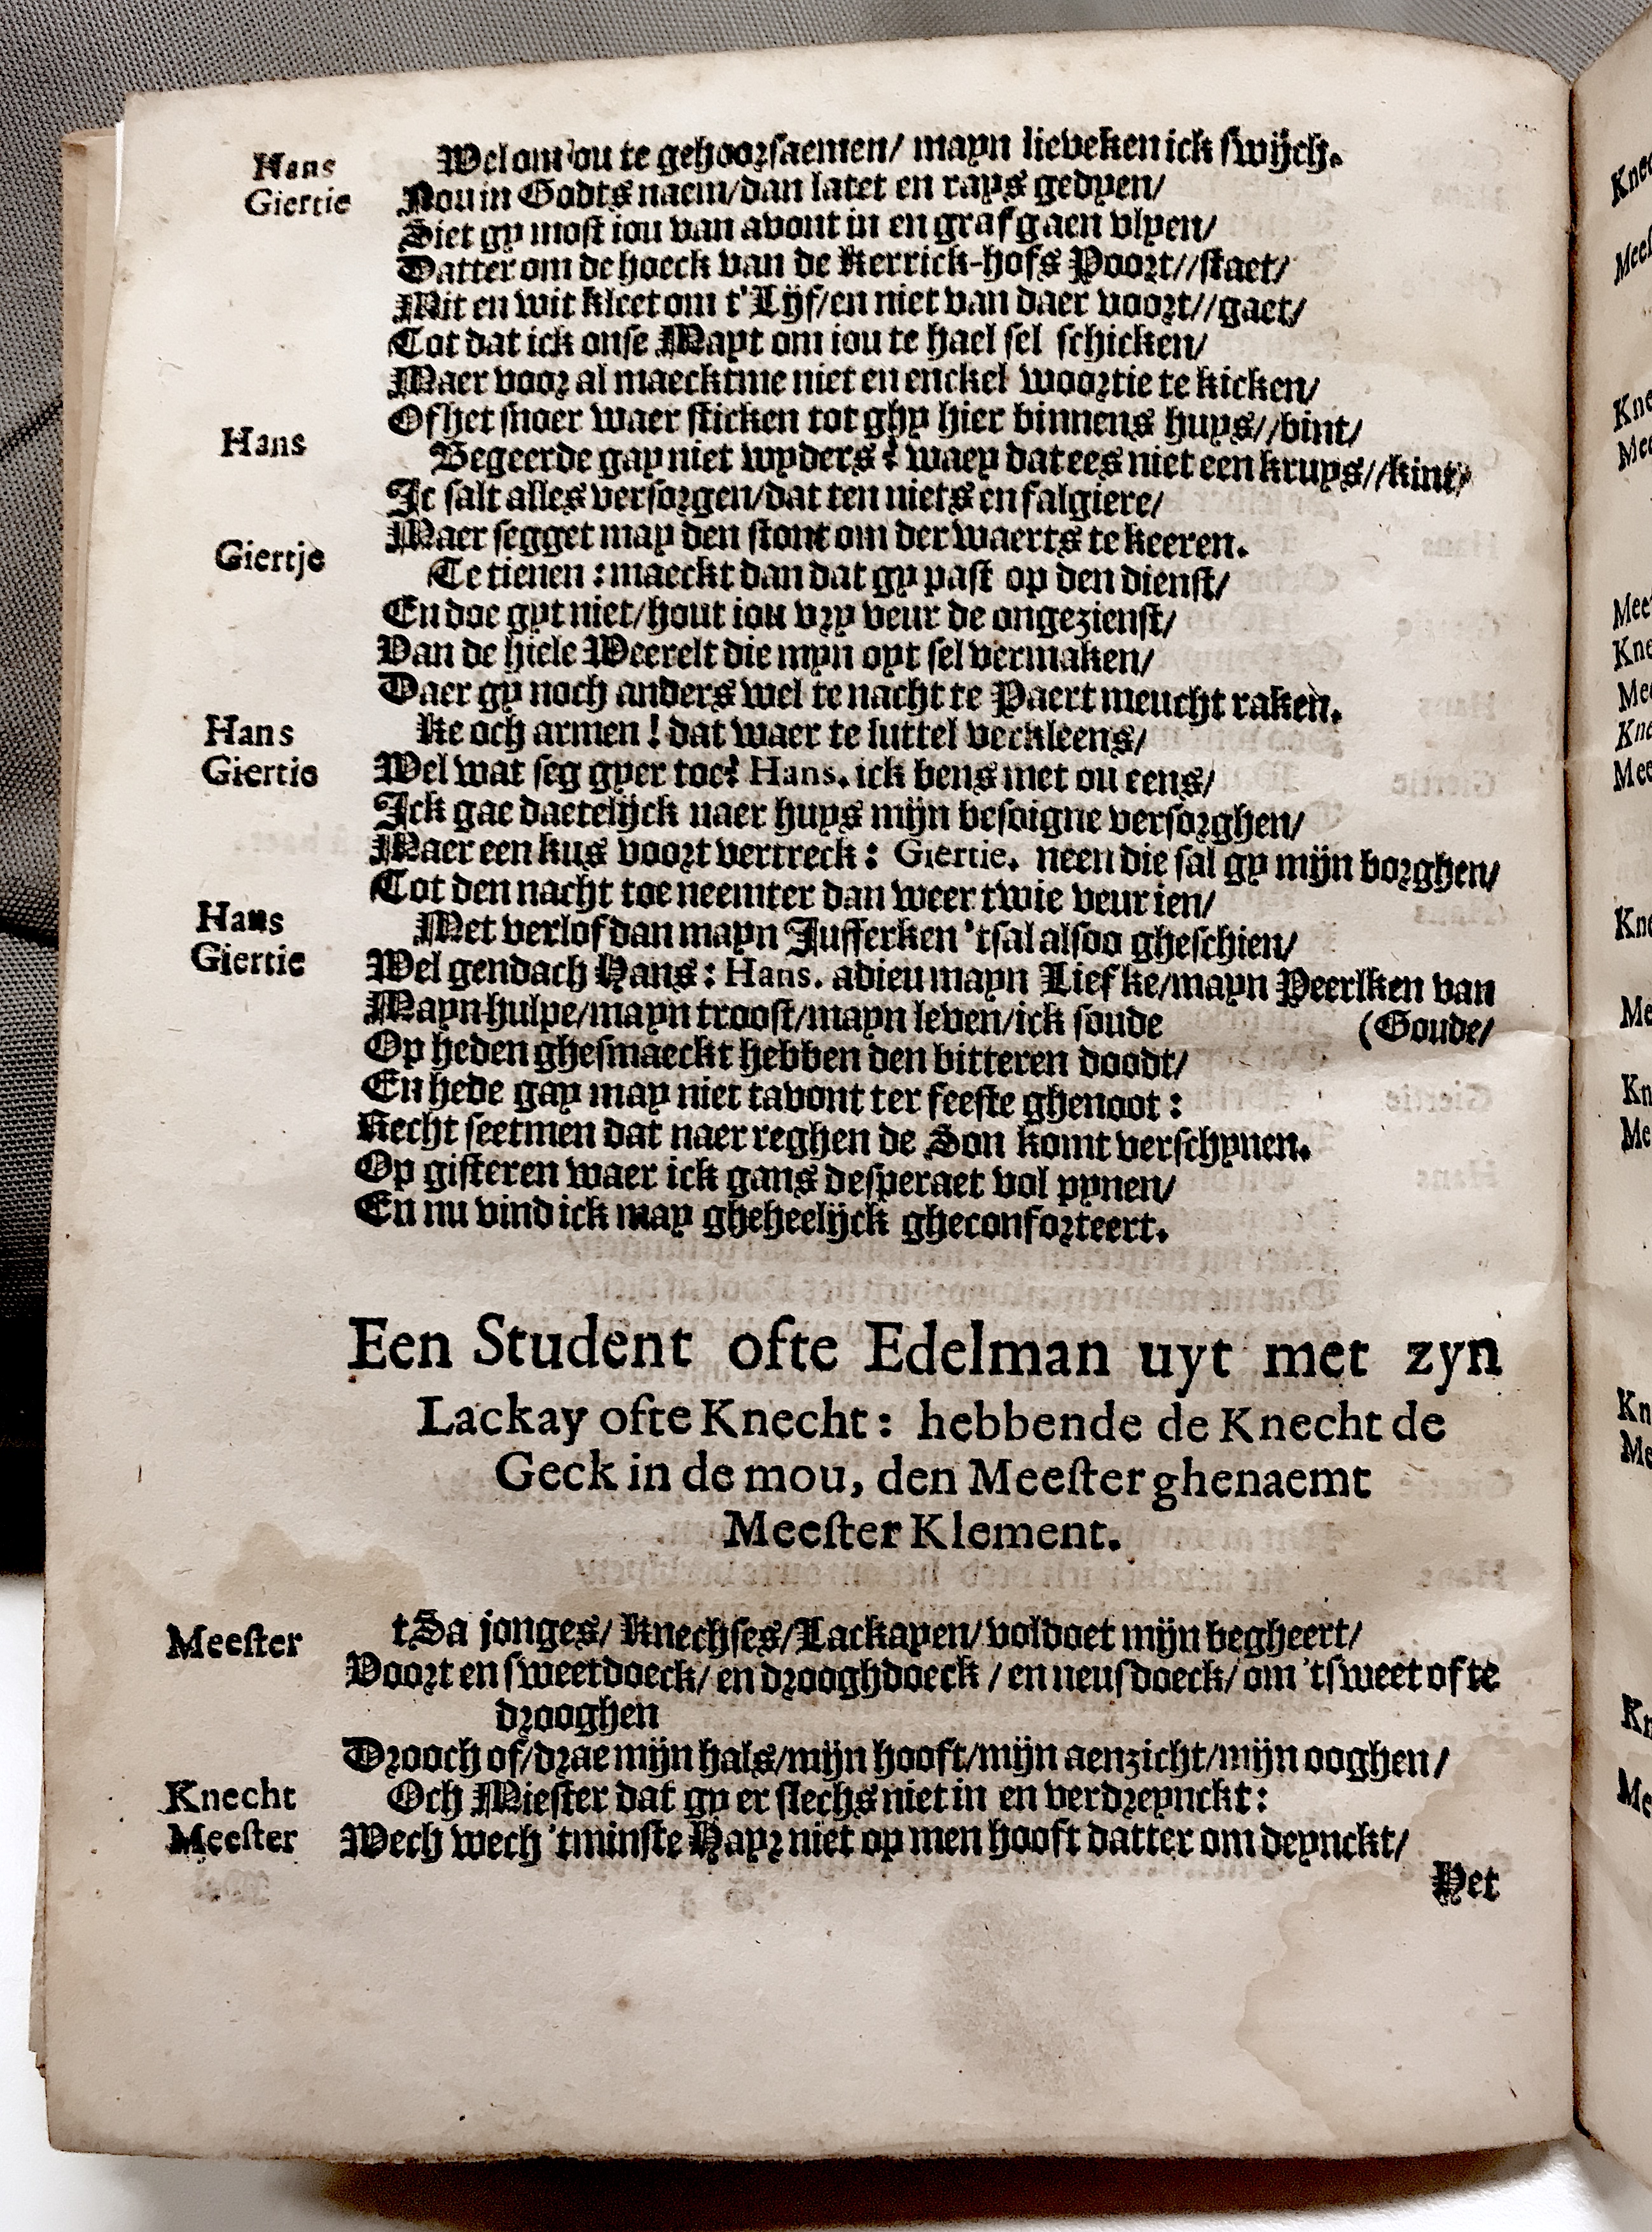 Hans Wel om ou te gehoorsaemen/ mayn lieveken ick swijch.
Giertie Nou in Godts naem/dan latet en rays gedyen/
Siet gy most iou van avont in en graf gaen vlyen/
Datter om de hoeck van de Kerrick-hofs Poort//staet/
Mit en wit kleet om t'Lijf/en niet van daer voort//gaet/
Tot dat ick onse Mayt om iou te hael sel schicken/
Maer voor al maecktme niet en enckel woortie te kicken/
Of het snoer waer sticken tot ghy hier binnens huys//bint/
Hans Begeerde gay niet wyders? waey dat ees niet een kruys//kint/
Ic salt alles versorgen/dat ten niets en falgiere/
Maer segget may den stont om der waerts te keeren.
Giertje Te tienen : maeckt dan dat gy past op den dienst/
En doe gyt niet/hout iou vry veur de ongezienst/
Van de hiele Weerelt die myn oyt sel vermaken/
Daer gy noch anders wel te nacht te Paert meucht raken.
Hans Ke och armen ! dat waer te luttel verkleens/
Giertie Wel wat seg gyer toe? Hans. ick bens met ou eens/
Ick gae daetelijck naer huys mijn besoigne versorghen/
Maer een kus voort vertreck : Giertie. neen die sal gy mijn borghen/
Tot den nacht toe neemter dan weer twie veur ien/
Hans Met verlof dan mayn Jufferken 'tsal alsoo gheschien/
Giertie Wel gendach Hans : Hans. adieu mayn Liefke/mayn Peerlken van
Mayn hulpe/mayn troost/mayn leven/ick soude (Goude/
Op heden ghesmaeckt hebben den bitteren doodt/
En hede gay may niet tavont ter feeste ghenoot :
Recht seetmen dat naer reghen de Son komt verschynen.
Op gisteren waer ick gans desperaet vol pynen/
En nu vind ick may gheheelijck gheconforteert.
Een Student ofte Edelman uyt met zyn
Lackay ofte Knecht : hebbende de Knecht de
Geck in de mou, den Meester ghenaemt
Meester Klement.
Meester tSa jonges/ Knechses/Lackayen/voldoet mijn begheert/
Voort en sweetdoeck/ en drooghdoeck / en neusdoeck/ om 'tsweet of te
drooghen
Drooch of/drae mijn hals/mijn hooft/mijn aenzicht/mijn ooghen/
Knecht Och Miester dat gy er slechs niet in en verdreynckt :
Meester Wech wech 'tminste Hayr niet op men hooft datter om deynckt/
Het